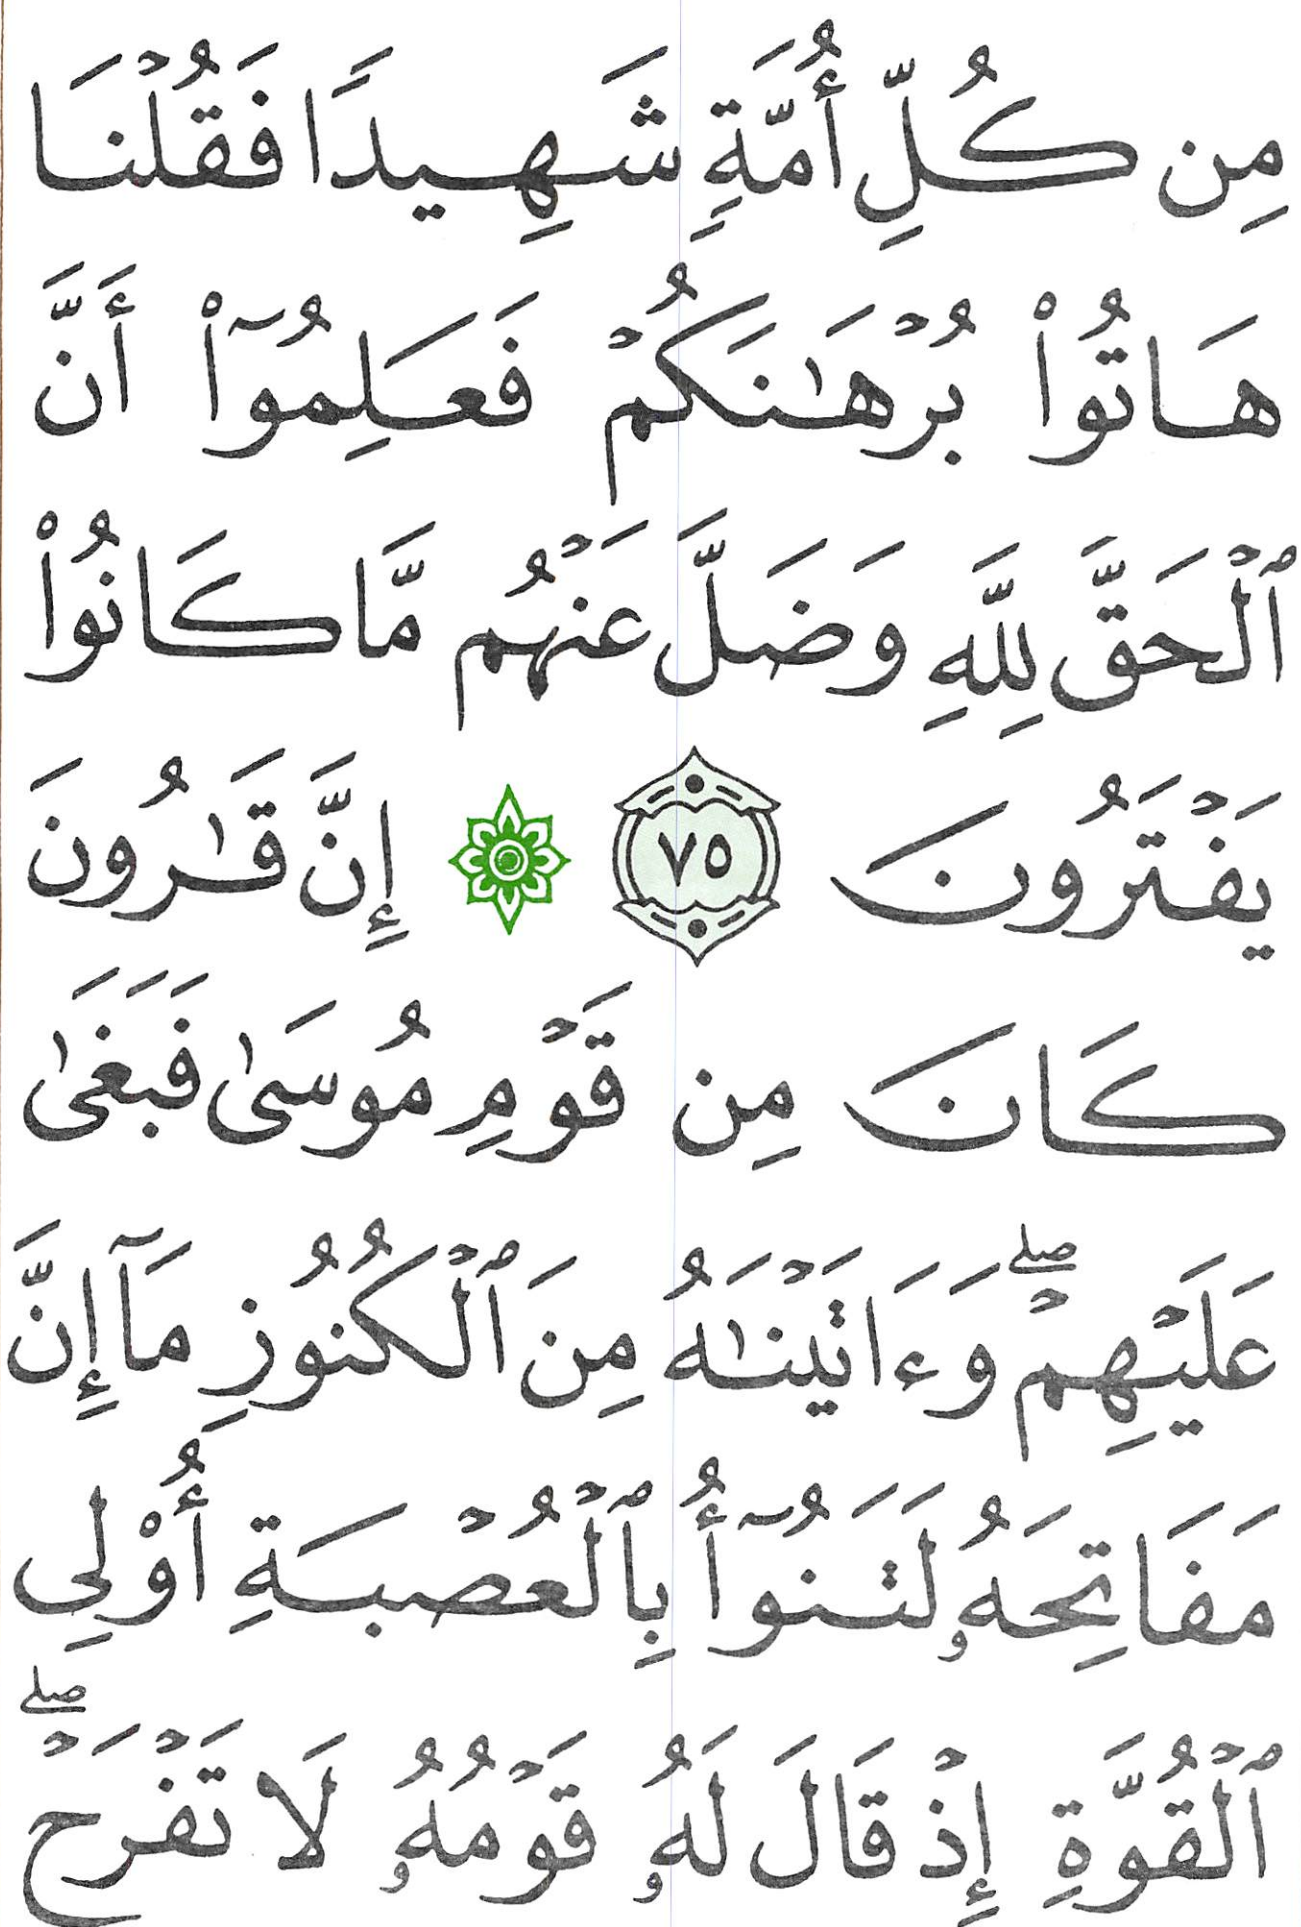 مِن كُلِّ أُمَّةٍ شَهِيدًا فَقُلْنَا
هَاتُوا۟ بُرْهَـٰنَكُمْ فَعَلِمُوٓا۟ أَنَّ
ٱلْحَقَّ لِلَّهِ وَضَلَّ عَنْهُم مَّا كَانُوا۟
يَفْتَرُونَ ٧٥ ۞ إِنَّ قَـٰرُونَ
كَانَ مِن قَوْمِ مُوسَىٰ فَبَغَىٰ
عَلَيْهِمْ ۖ وَءَاتَيْنَـٰهُ مِنَ ٱلْكُنُوزِ مَآ إِنَّ
مَفَاتِحَهُۥ لَتَنُوٓأُ بِٱلْعُصْبَةِ أُو۟لِى
ٱلْقُوَّةِ إِذْ قَالَ لَهُۥ قَوْمُهُۥ لَا تَفْرَحْ ۖ